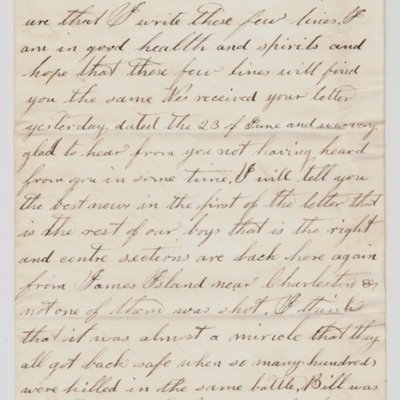 ure that I write these few lines. I
am in good health and spirits and
hope that these few lines will find
you the same We received your letter
yesterday, dated the 23 of June and was very
glad to hear from you not having heard
from you in some time, I will tell you
the best news in the first of the letter that
is the rest of our boys that is the right
and centre sections are back here again
from James Island near Charleston &
not one of them was shot. I think
that it was almost a miracle that they
all got back safe when so many hundreds
were killed in the same battle, Bill was